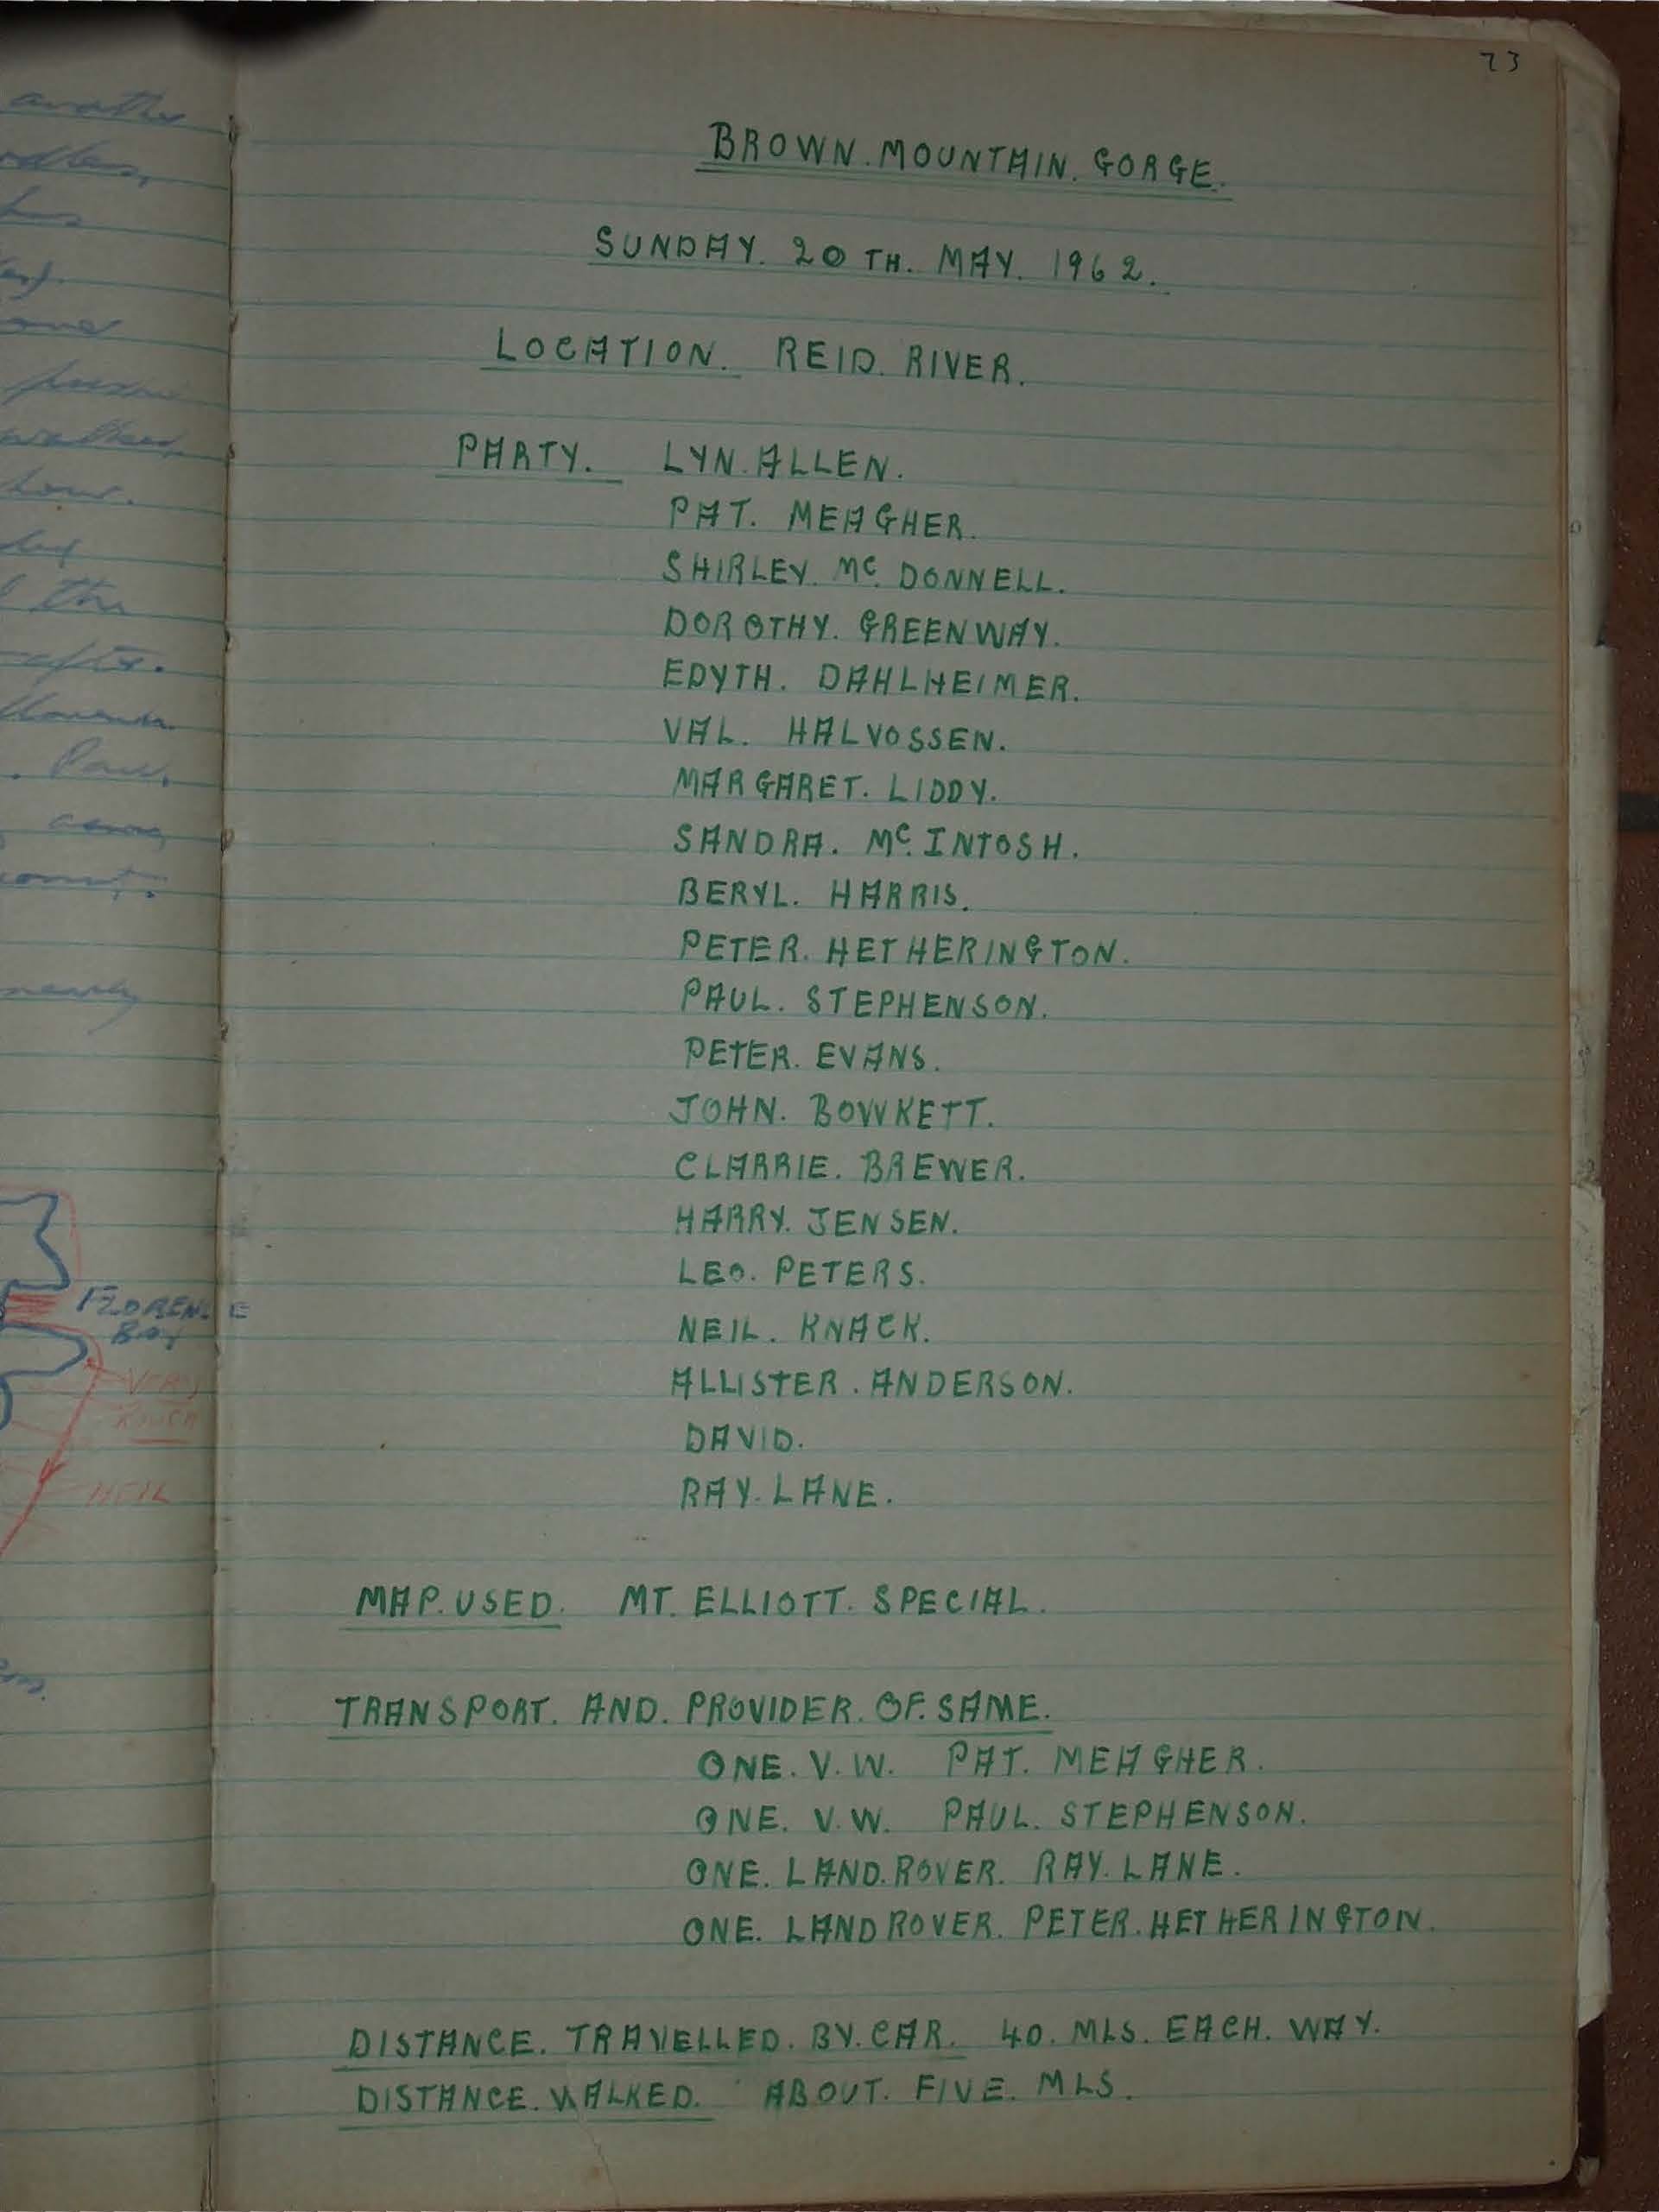 73
BROWN. MOUNTAIN. GORGE.
SUNDAY. 20TH. MAY. 1962.
LOCATION. REID. RIVER.
PARTY. LYN. ALLEN.
PAT. MEAGHER.
SHIRLEY. Mc. DONNELL.
DOROTHY. GREENWAY.
EDYTH. DAHLHEIMER.
VAL. HALVOSSEN.
MARGARET. LIDDY.
SANDRA. Mc. INTOSH.
BERYL. HARRIS.
PETER. HETHERINGTON.
PAUL. STEPHENSON.
PETER. EVANS.
JOHN. BOWKETT.
CLARRIE. BREWER.
HARRY. JENSEN.
LEO. PETERS.
NEIL. KNACK.
ALLISTER. ANDERSON.
DAVID.
RAY. LANE.
MAP. USED. MT. ELLIOTT. SPECIAL.
TRANSPORT. AND. PROVIDER. OF. SAME.
ONE. V.W. PAT. MEAGHER.
ONE. V.W. PAUL. STEPHENSON.
ONE. LAND. ROVER. RAY. LANE.
ONE. LANDROVER. PETER. HETHERINGTON.
DISTANCE. TRAVELLED. BY. CAR. 40. MLS. EACH. WAY.
DISTANCE. WALKED. ABOUT. FIVE. MLS.
the
. Paul,
nearly
FLORENCE
BAY
VERY
ROUGH
NEIL